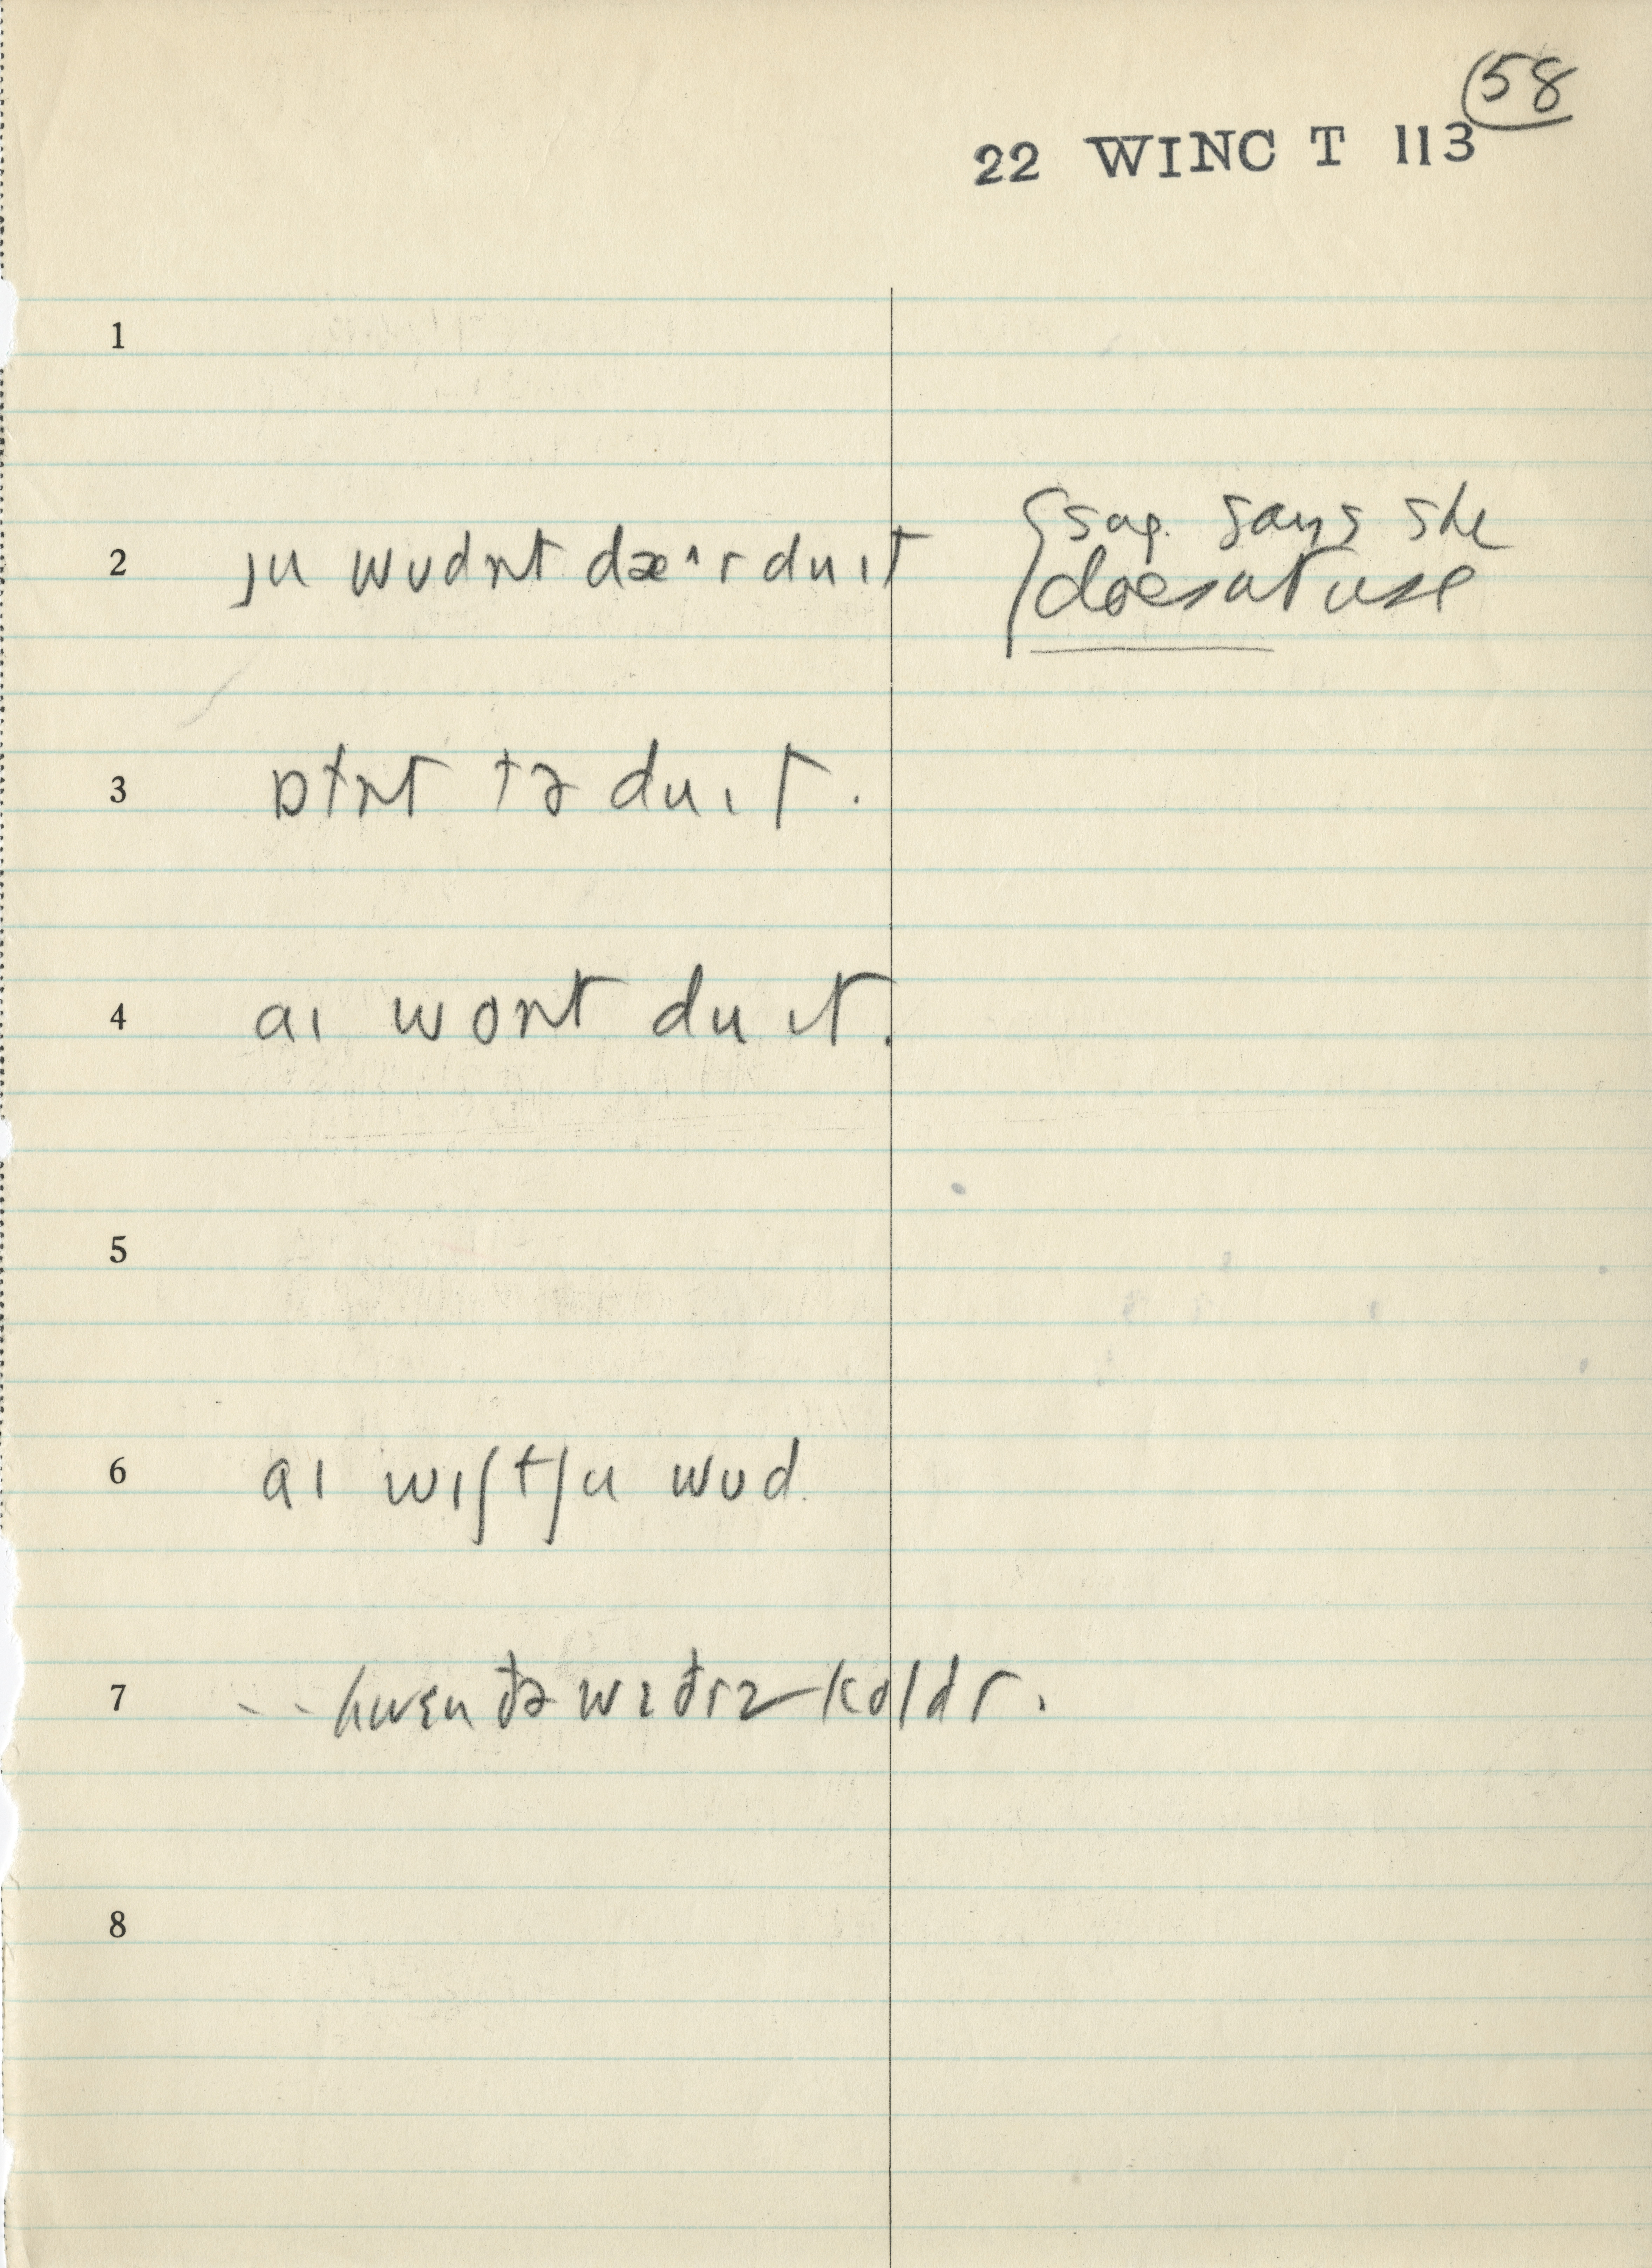 58
22 WINC T 113
1
2 ju wʊdn̩t dæ˄r du ɪt {sug. says she
doesnt use
3 ɒtn̩t tə du ɪt.
4 aɪ wont du ɪt.
5
6 aɪ wɪʃtʃu wʊd
7 -- hwɛn ðə wɛðrz koldr.
8